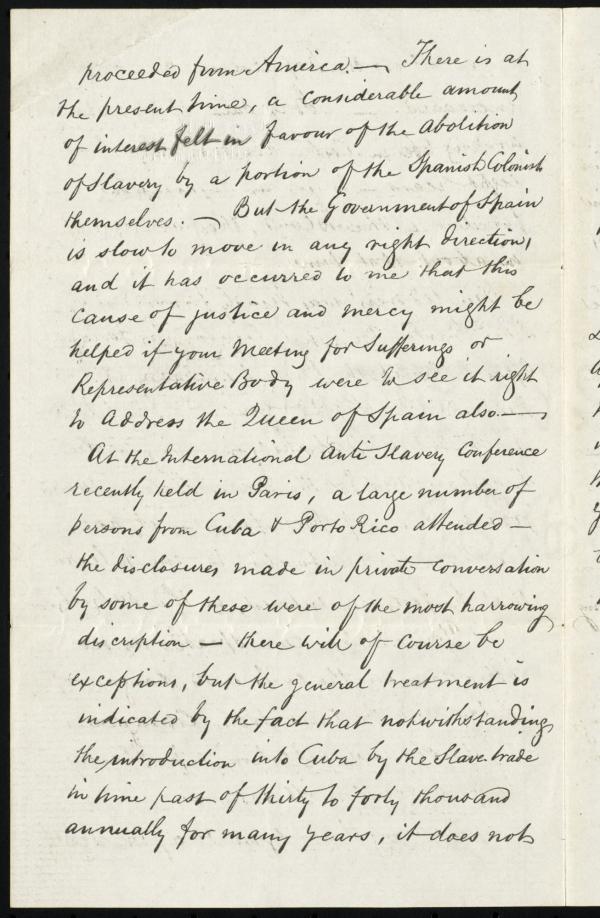 proceeded from America. — There is at
the present time, a considerable amount
of interest felt in favour of the Abolition
of Slavery by a portion of the Spanish Colonists
themselves. — But the Government of Spain
is slow to move in any right direction,
and it has occurred to me that this
cause of justice and mercy might be
helped if your Meeting for Sufferings or
Representative Body were to see it right
to Address the Queen of Spain also. —
At the International Anti Slavery Conference
recently held in Paris, a large number of
persons from Cuba & Porto Rico attended —
the disclosures made in private conversation
by some of these were of the most harrowing
discription — there will of course be
exceptions, but the general treatment is
indicated by the fact that notwithstanding
the introduction into Cuba by the Slave trade
in time past of thirty to forty thousand
annually for many years, it does not